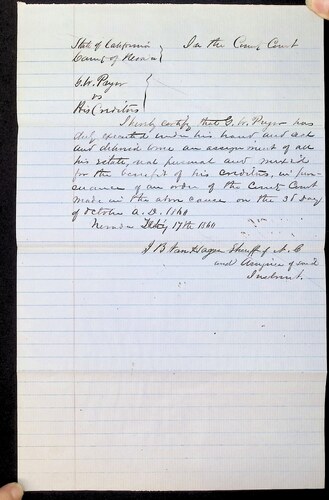 State of California } In the County Court
County of Nevada
G. W. Pryor
vs
His Creditors
I hereby certify that G. W. Pryor has
duly executed under his hand and seal
and delivered to me an assignment of all
his estate, real personal and mixed
for the benefit of his creditors, in pur-
suance of an order of the County Court
made in the above cause on the 3d day
of October A. D. 1860
Nevada 17th 1860
J B Van Hagan Sheriff of N. C.
and Assignee of said
Insolvent.